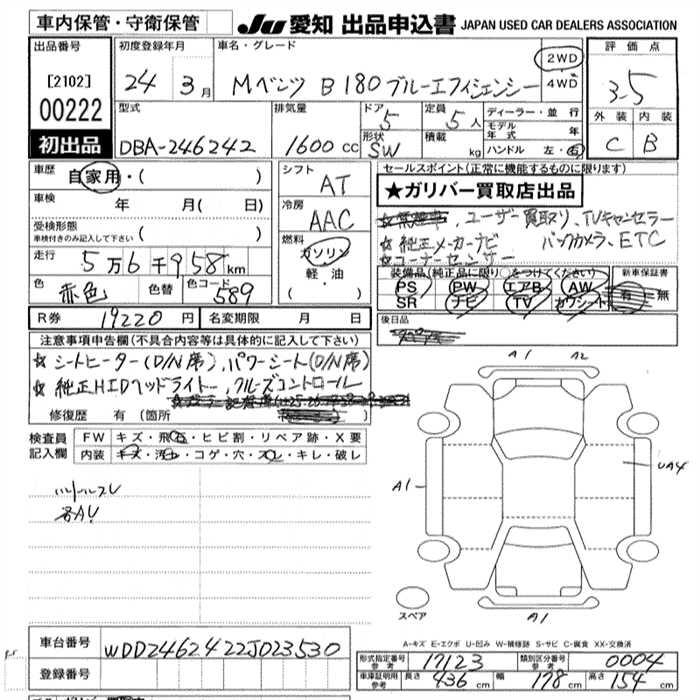 車内保管・守衛保管
JU 愛知 出品申込書 JAPAN USED CAR DEALERS ASSOCIATION
出品番号 初度登録年月 車名・グレード 評価点
[2102] 24年 3月 Mベンツ B180 ブルーエフィシェンシー 2WD 4WD 3.5
00222 型式 排気量 ドア 5 定員 5人 ディーラー・並行 外装 内装
モデル年式 年
初出品 DBA-246242 1600cc 形状 SW 積載 kg ハンドル 左・右 C B
車歴 自家用・( ) シフト AT セールスポイント(正常に機能するものに限ります)
★ガリバー買取店出品
車検 年 月( 日) 冷房 AAC
ユーザー買取り、TVキャンセラー
受検形態 車検付きのみ記入して下さい ( )
☆純正メーカーナビ バックカメラ、ETC
☆コーナーセンサー
走行 5万6千958km 燃料 ガソリン 軽・油 ( )
装備品(純正品に限り○をつけてください) 新車保証書
色 赤色 色替 色コード 589
PS PW エアB AW 有・無
SR ナビ TV カワシート
R券 19220円 名変期限 月 日 後日品
注意事項申告欄(不具合内容等は具体的に記入して下さい)
☆シートヒーター(D/N席)、パワーシート(D/N席)
☆純正HIDヘッドライト、クルーズコントロール
修復歴 有 (箇所
検査員記入欄 FW キズ・飛石・ヒビ割・リペア跡・X要
内装 キズ・汚れ・コゲ・穴・スレ・キレ・破レ
ハンドルスレ
各A1
A1 A2
A1 UA4
スペア A1
A-キズ E-エクボ U-凹み W-補修跡 S-サビ C-腐食 XX-交換済
車台番号 WDD2462422J023530
形式指定番号 参考 17123 類別区分番号 参考 0004
登録番号
車庫証明用 参考 長さ 436cm 幅 178cm 高さ 154cm